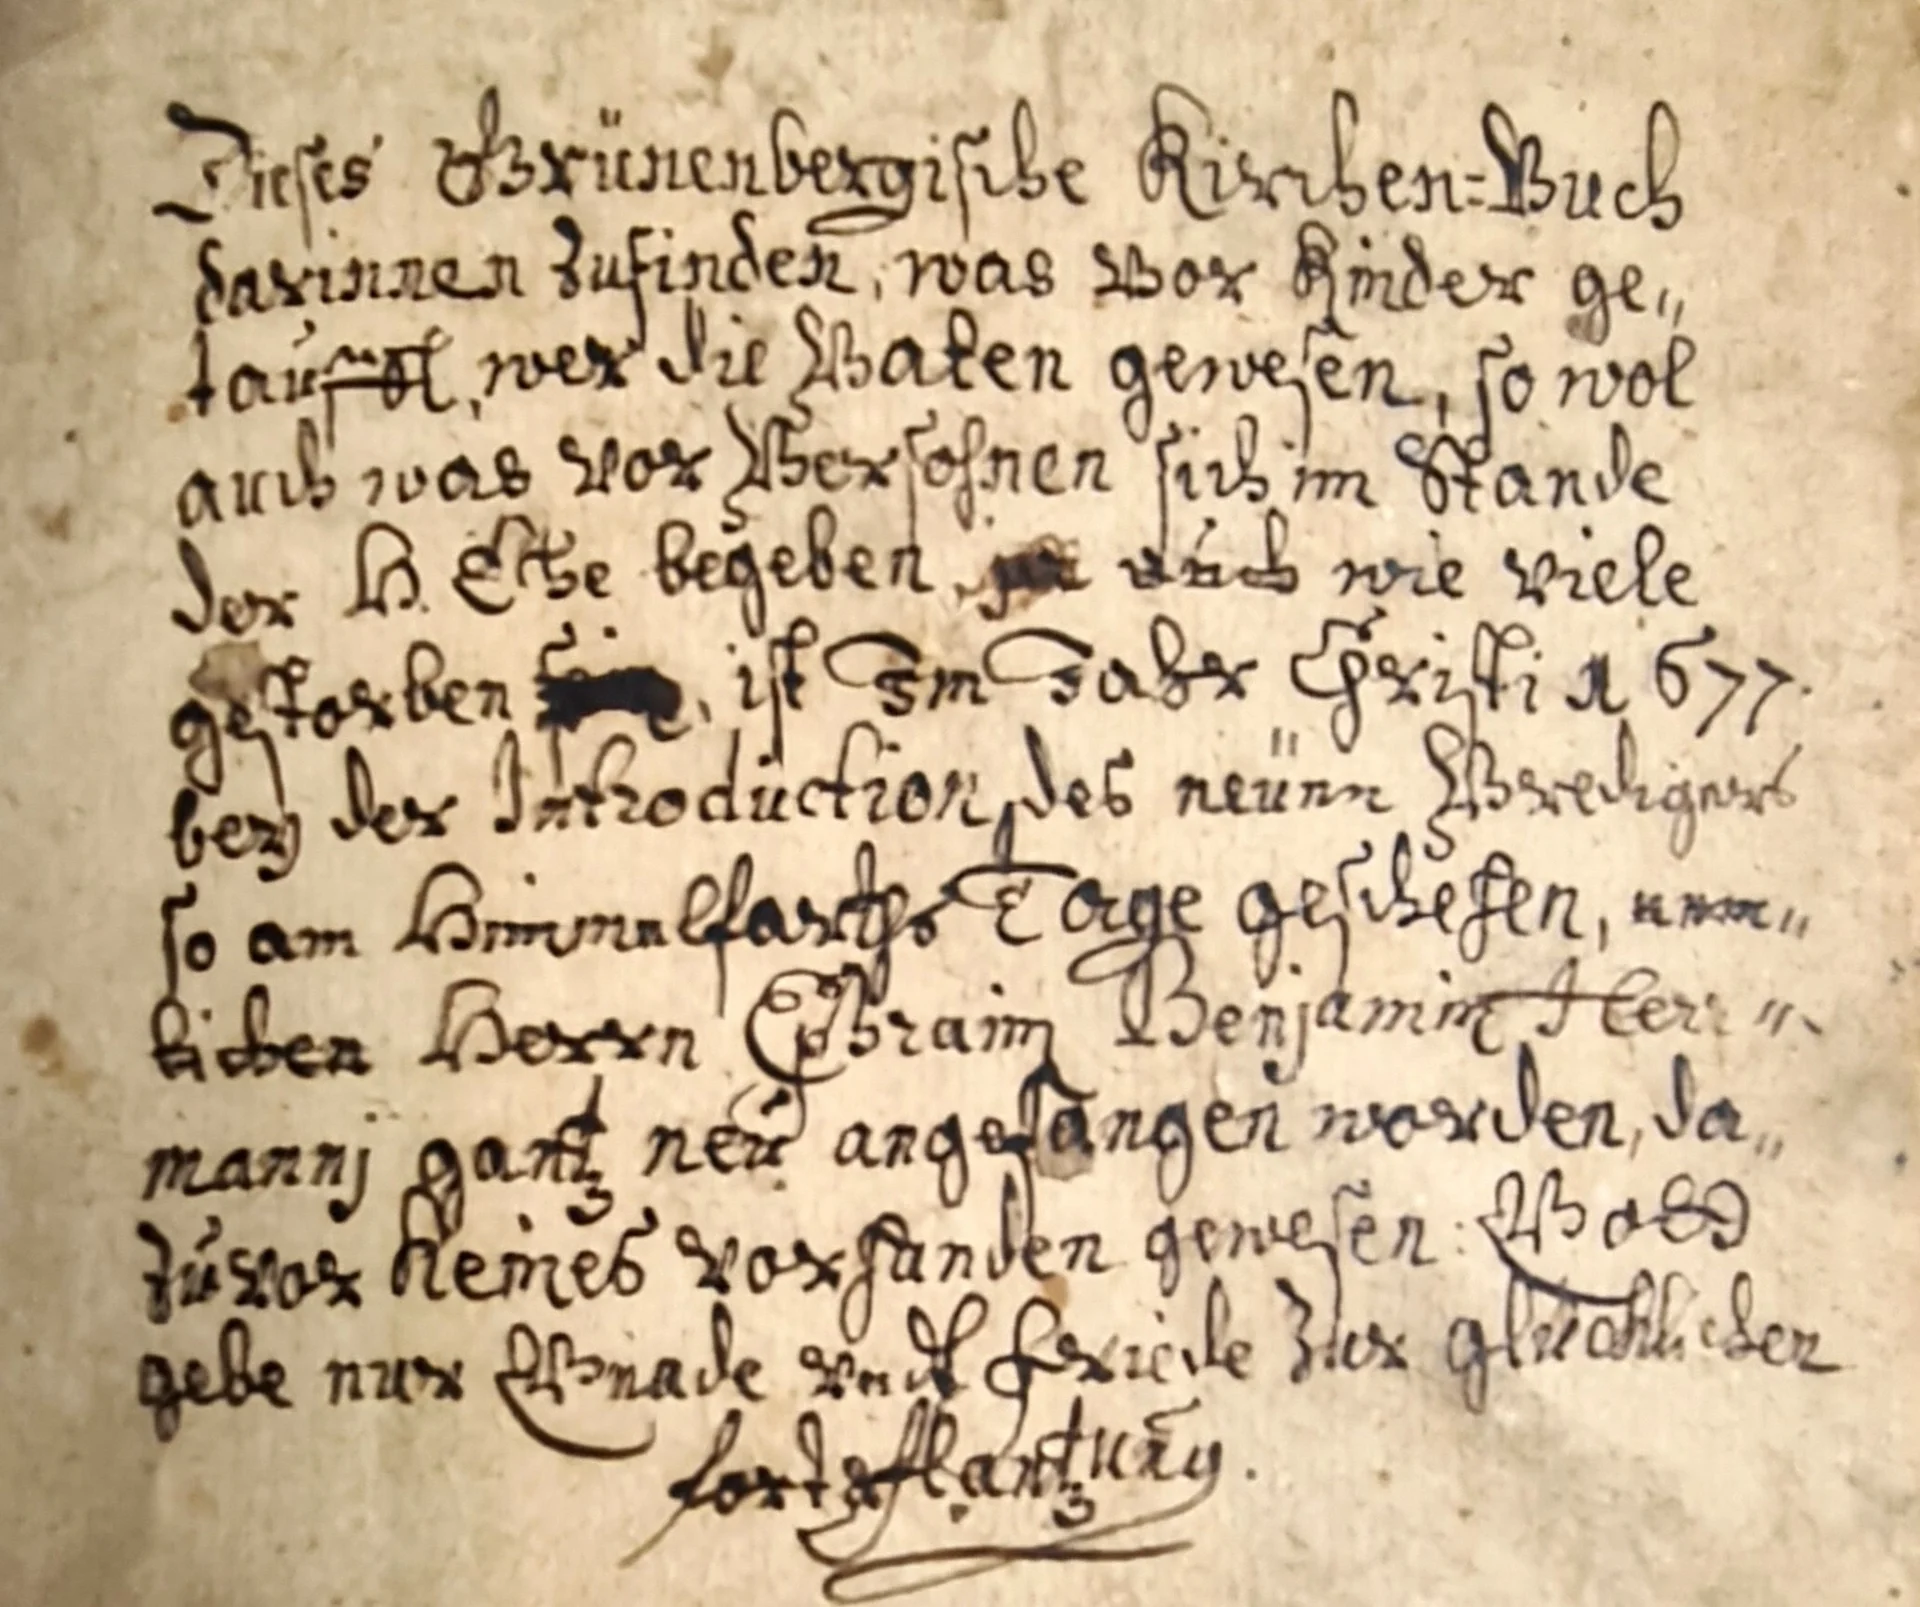 Dieses Grünenbergische Kirchen=Buch
darinnen zufinden, was vor Kinder ge„
taufft, wer die Paten gewesen, so wol
auch was vor Persohnen sich im Stande
der H. Ehe begeben, auch wie viele
gestorben, ist Im Jahr Christi 1677.
bey der Introduction des neüen Predigers
so am Himmelfarths Tage geschehen, nem„
lichen Herrn Ephraim Benjamin Her„
manni gantz neü angefangen worden, da„
zuvor keines vorhanden gewesen: GOTT
gebe nur Gnade undt Friede zur glücklichen
fortpflantzung.